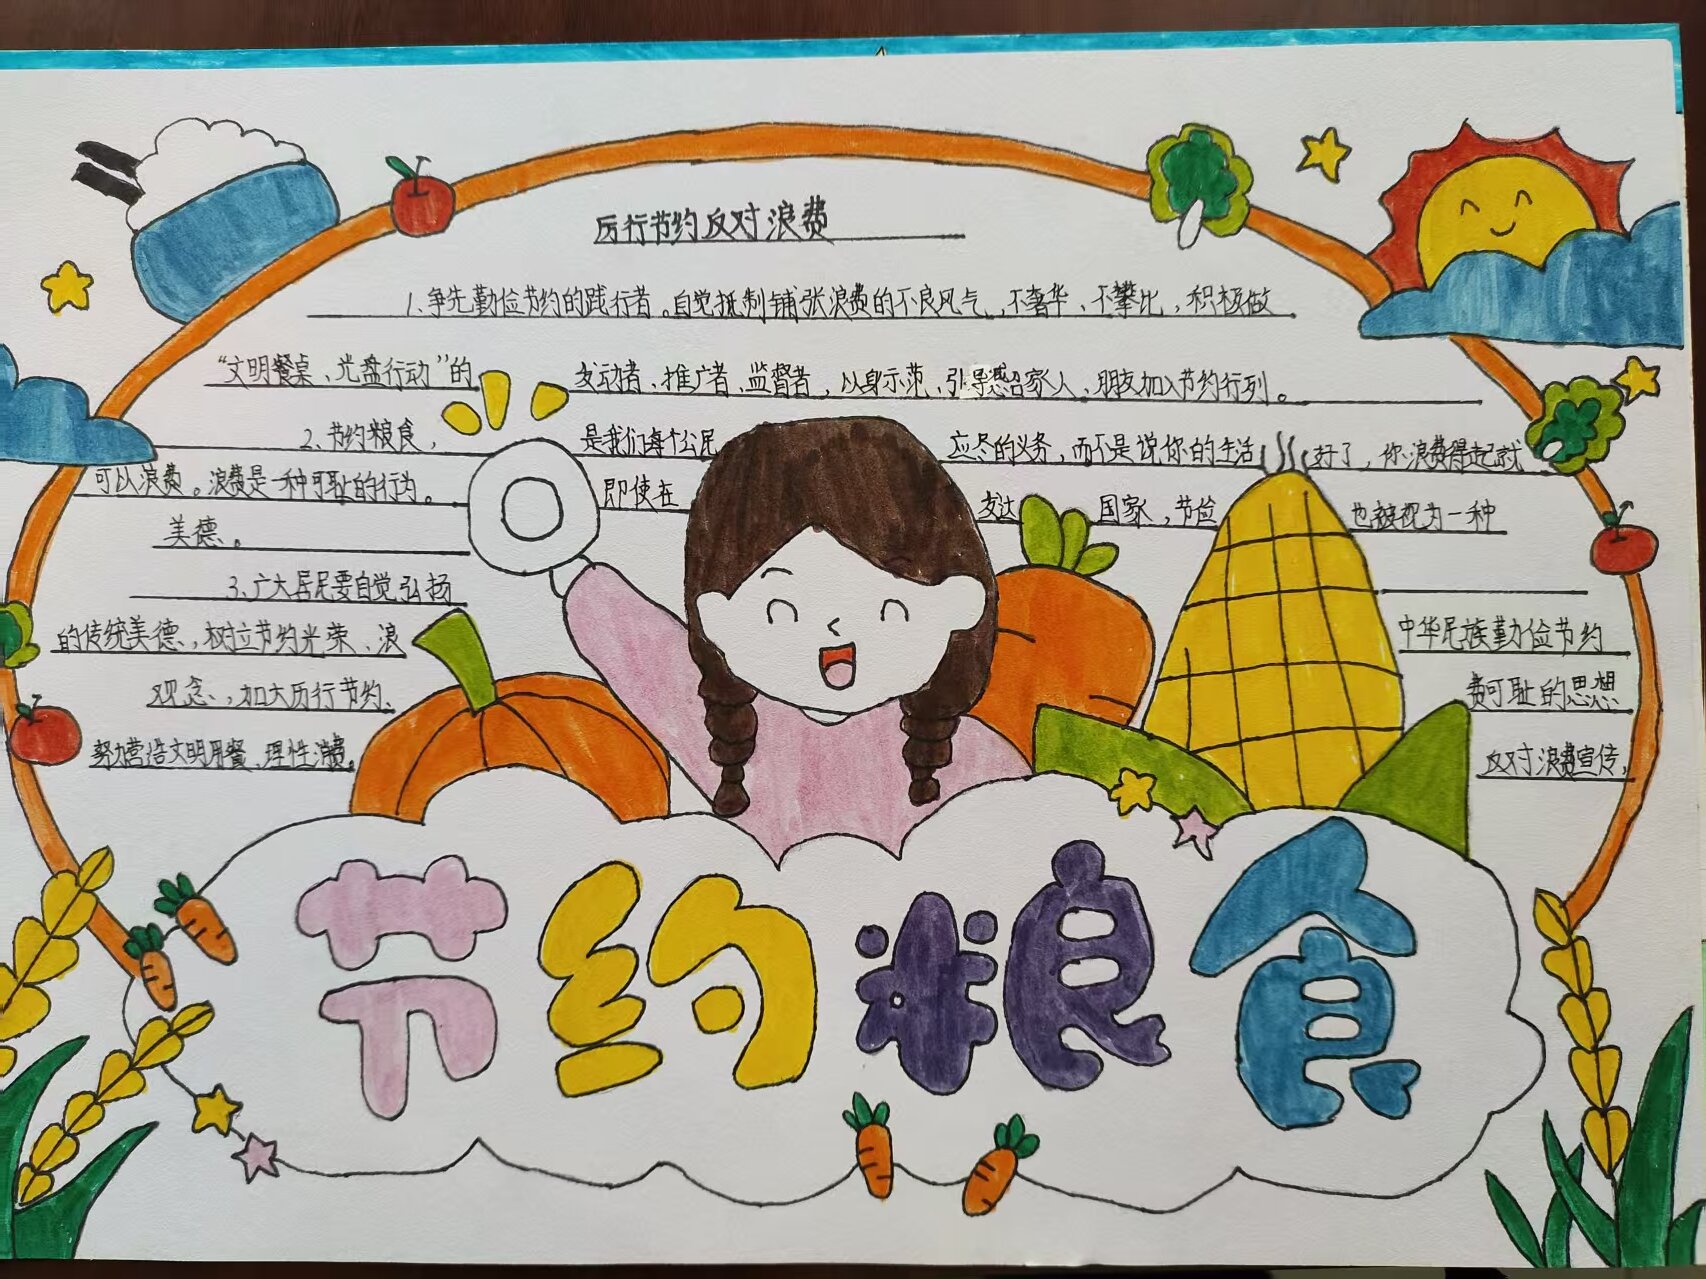 厉行节约反对浪费
1、争先勤俭节约的践行者。自觉抵制铺张浪费的不良风气、不奢华、不攀比，积极做
“文明餐桌、光盘行动”的 发动者、推广者、监督者，以身示范、引导感召家人、朋友加入节约行列。
2、节约粮食， 是我们每个公民 应尽的义务，而不是说你的生活 好了，你浪费得起就
可以浪费。浪费是一种可耻的行为。 即使在 发达 国家，节俭 也被视为一种
美德。
3、广大居民要自觉弘扬
的传统美德、树立节约光荣、浪 中华民族勤俭节约
观念、加大厉行节约、 费可耻的思想
努力营造文明用餐、理性消费。 反对浪费宣传，
节约粮食